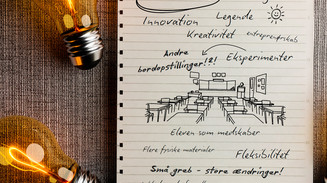 Innovation Legende
Kreativitet entreprenørskab
Andre
bordopstillinger!?! Eksperimenter
Eleven som medskaber
Flere fysiske materialer
Fleksibilitet
Små greb - store ændringer!